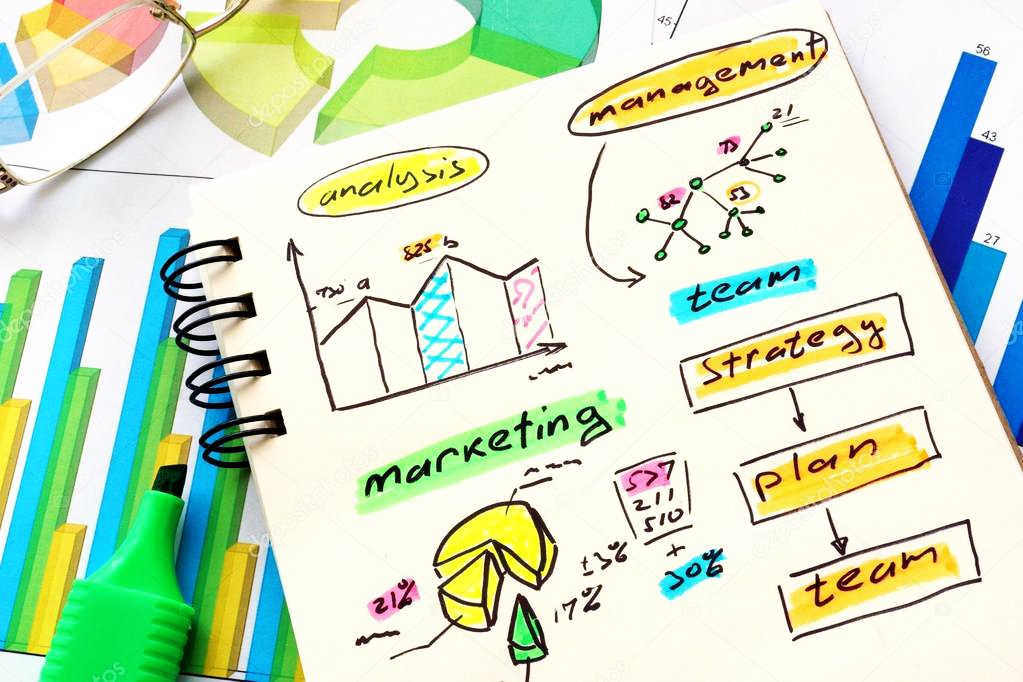 45
56
43
27
management
21
73
82
53
analysis
825 b
730 a
team
strategy
marketing
plan
577
211
510
+
30%
±3%
21%
17%
team
depositphotos